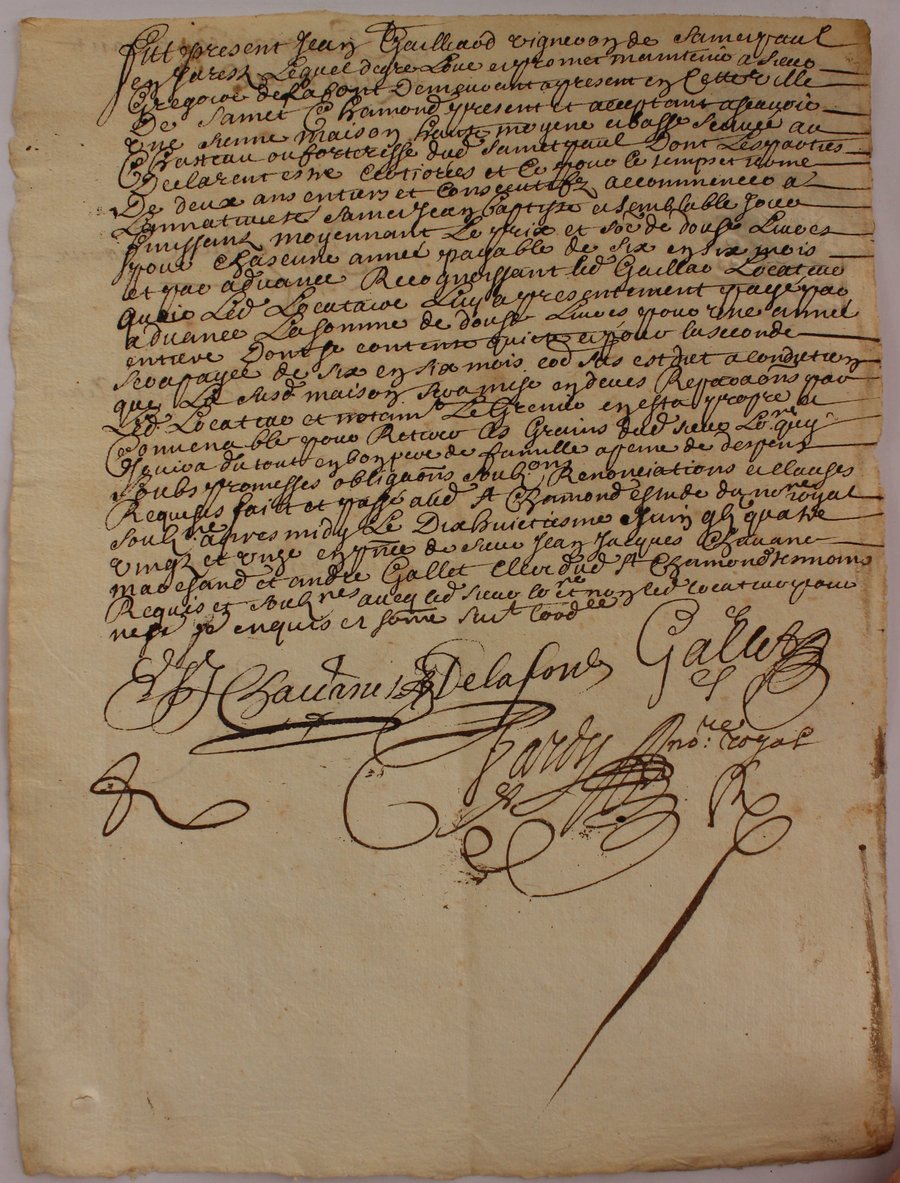 fut present Jean Gailliard vigneron de Sainct paul
en Jarest Lequel de gre Loue et promet maintenir a sieur
Gregoire de Lafont demeurant a present en cette ville
De Sainct Chamond present et acceptant a scavoir
une sienne maison haute moyene et basse scituée au
Chasteau ou forteresse dud Sainct paul Dont Les parties
Declarent estre et ce pour le temps et terme
De deux ans entiers et consecutifz a commencer a
La nativité Sainct Jean Baptiste et semblable Jour
finissant moyennant Le prix et so.e de douse Livres
pour chascune année payable de six en six mois
et par advance Recognoissant led Gaillar Locataire
quoir Led Locataire Luy a presentement payé par
advance La somme de douse Livres pour une année
entiere Dont se contente quicte et pour la seconde
sera payée de six en six mois cod sus est dit a condition
que La susd maison sera mise en deues Reparaõns par
Led Locataire et notam.t Le Grenier en estat propre et
Convenable pour Retirer Les Grains dud sieur Lo.re quy
Jouira du tout en bon pere de famille a peine de despens
soubs promesses obligaõns soub.ons Renonciations et clauses
Requises fait et passé aud St Chamond estude du no.re royal
soub.ne apres midy Le Dixhuictiesme Juin gbi quatre
vingt et unze en p.nce de sieur Jean Jacques Chavane
marchand et andre Gallet clerc dud St Chamond tesmoins
Requis et soub.nes avecq led sieur lo.re et non led locataire pour
ne enquis et sommé suiv.t lord.ce
Chavane Delafont Gallet
hardy no.re royal